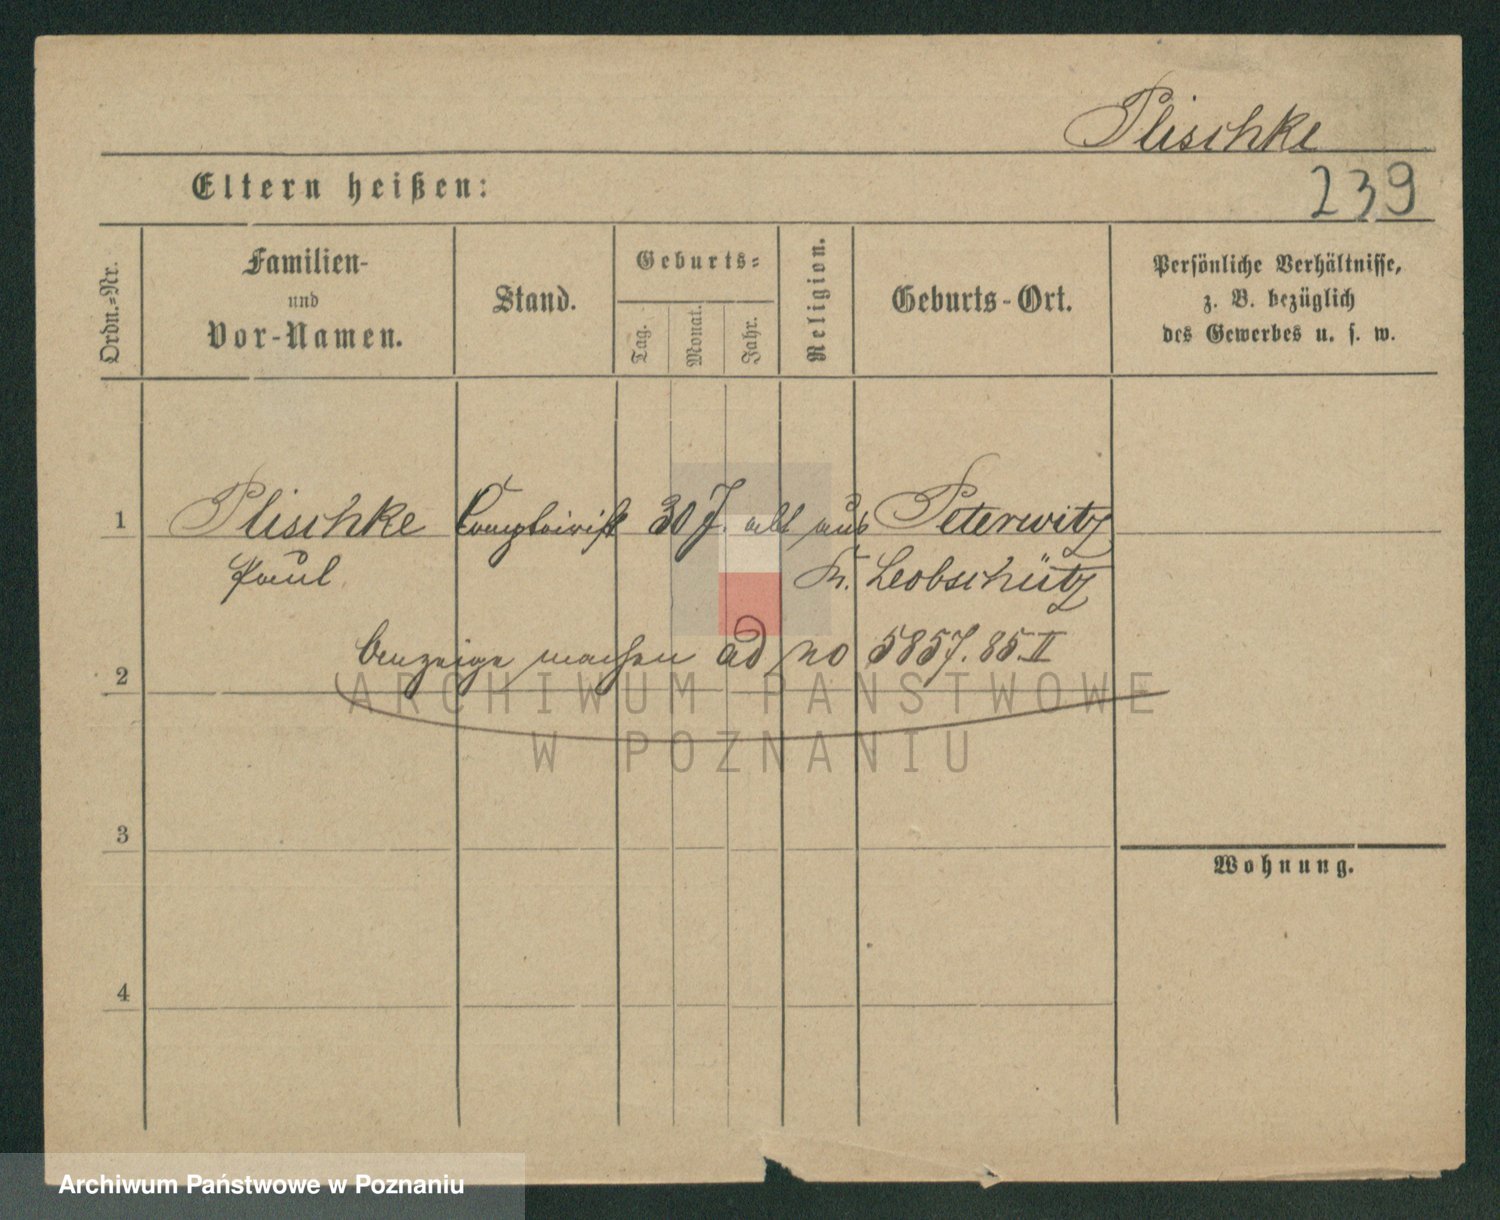 Plischke
239
Eltern heißen:
Ordn.-Nr.
Familien-
und
Vor-Namen.
Stand.
Geburts-
Tag.
Monat.
Jahr.
Religion.
Geburts-Ort.
Persönliche Verhältnisse,
z. B. bezüglich
des Gewerbes u. s. w.
1 Plischke Comptoirist 30 J. alt aus Peterwitz
Paul Kr. Leobschütz
Anzeige machen ad no 5857.85.II
2
ARCHIWUM PAŃSTWOWE
W POZNANIU
3
Wohnung.
4
Archiwum Państwowe w Poznaniu